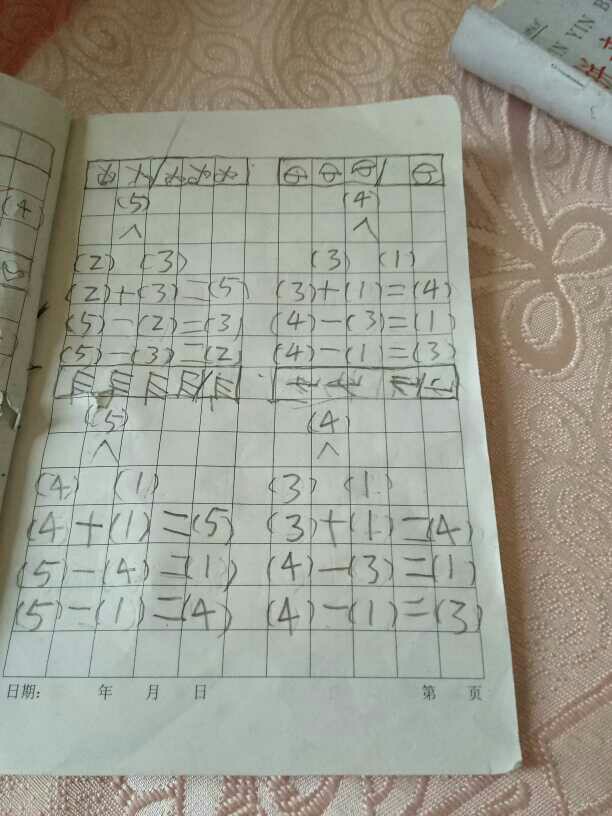 (5) (4)
(2) (3) (3) (1)
(2)+(3)=(5) (3)+(1)=(4)
(5)-(2)=(3) (4)-(3)=(1)
(5)-(3)=(2) (4)-(1=(3)
(5) (4)
(4) (1) (3) (1)
(4+(1)=(5) (3)+(1)=(4)
(5)-(4)=(1) (4)-(3)=(1)
(5)-(1)=(4) (4)-(1)=(3)
日期: 年 月 日 第 页
(4
IN YIN B